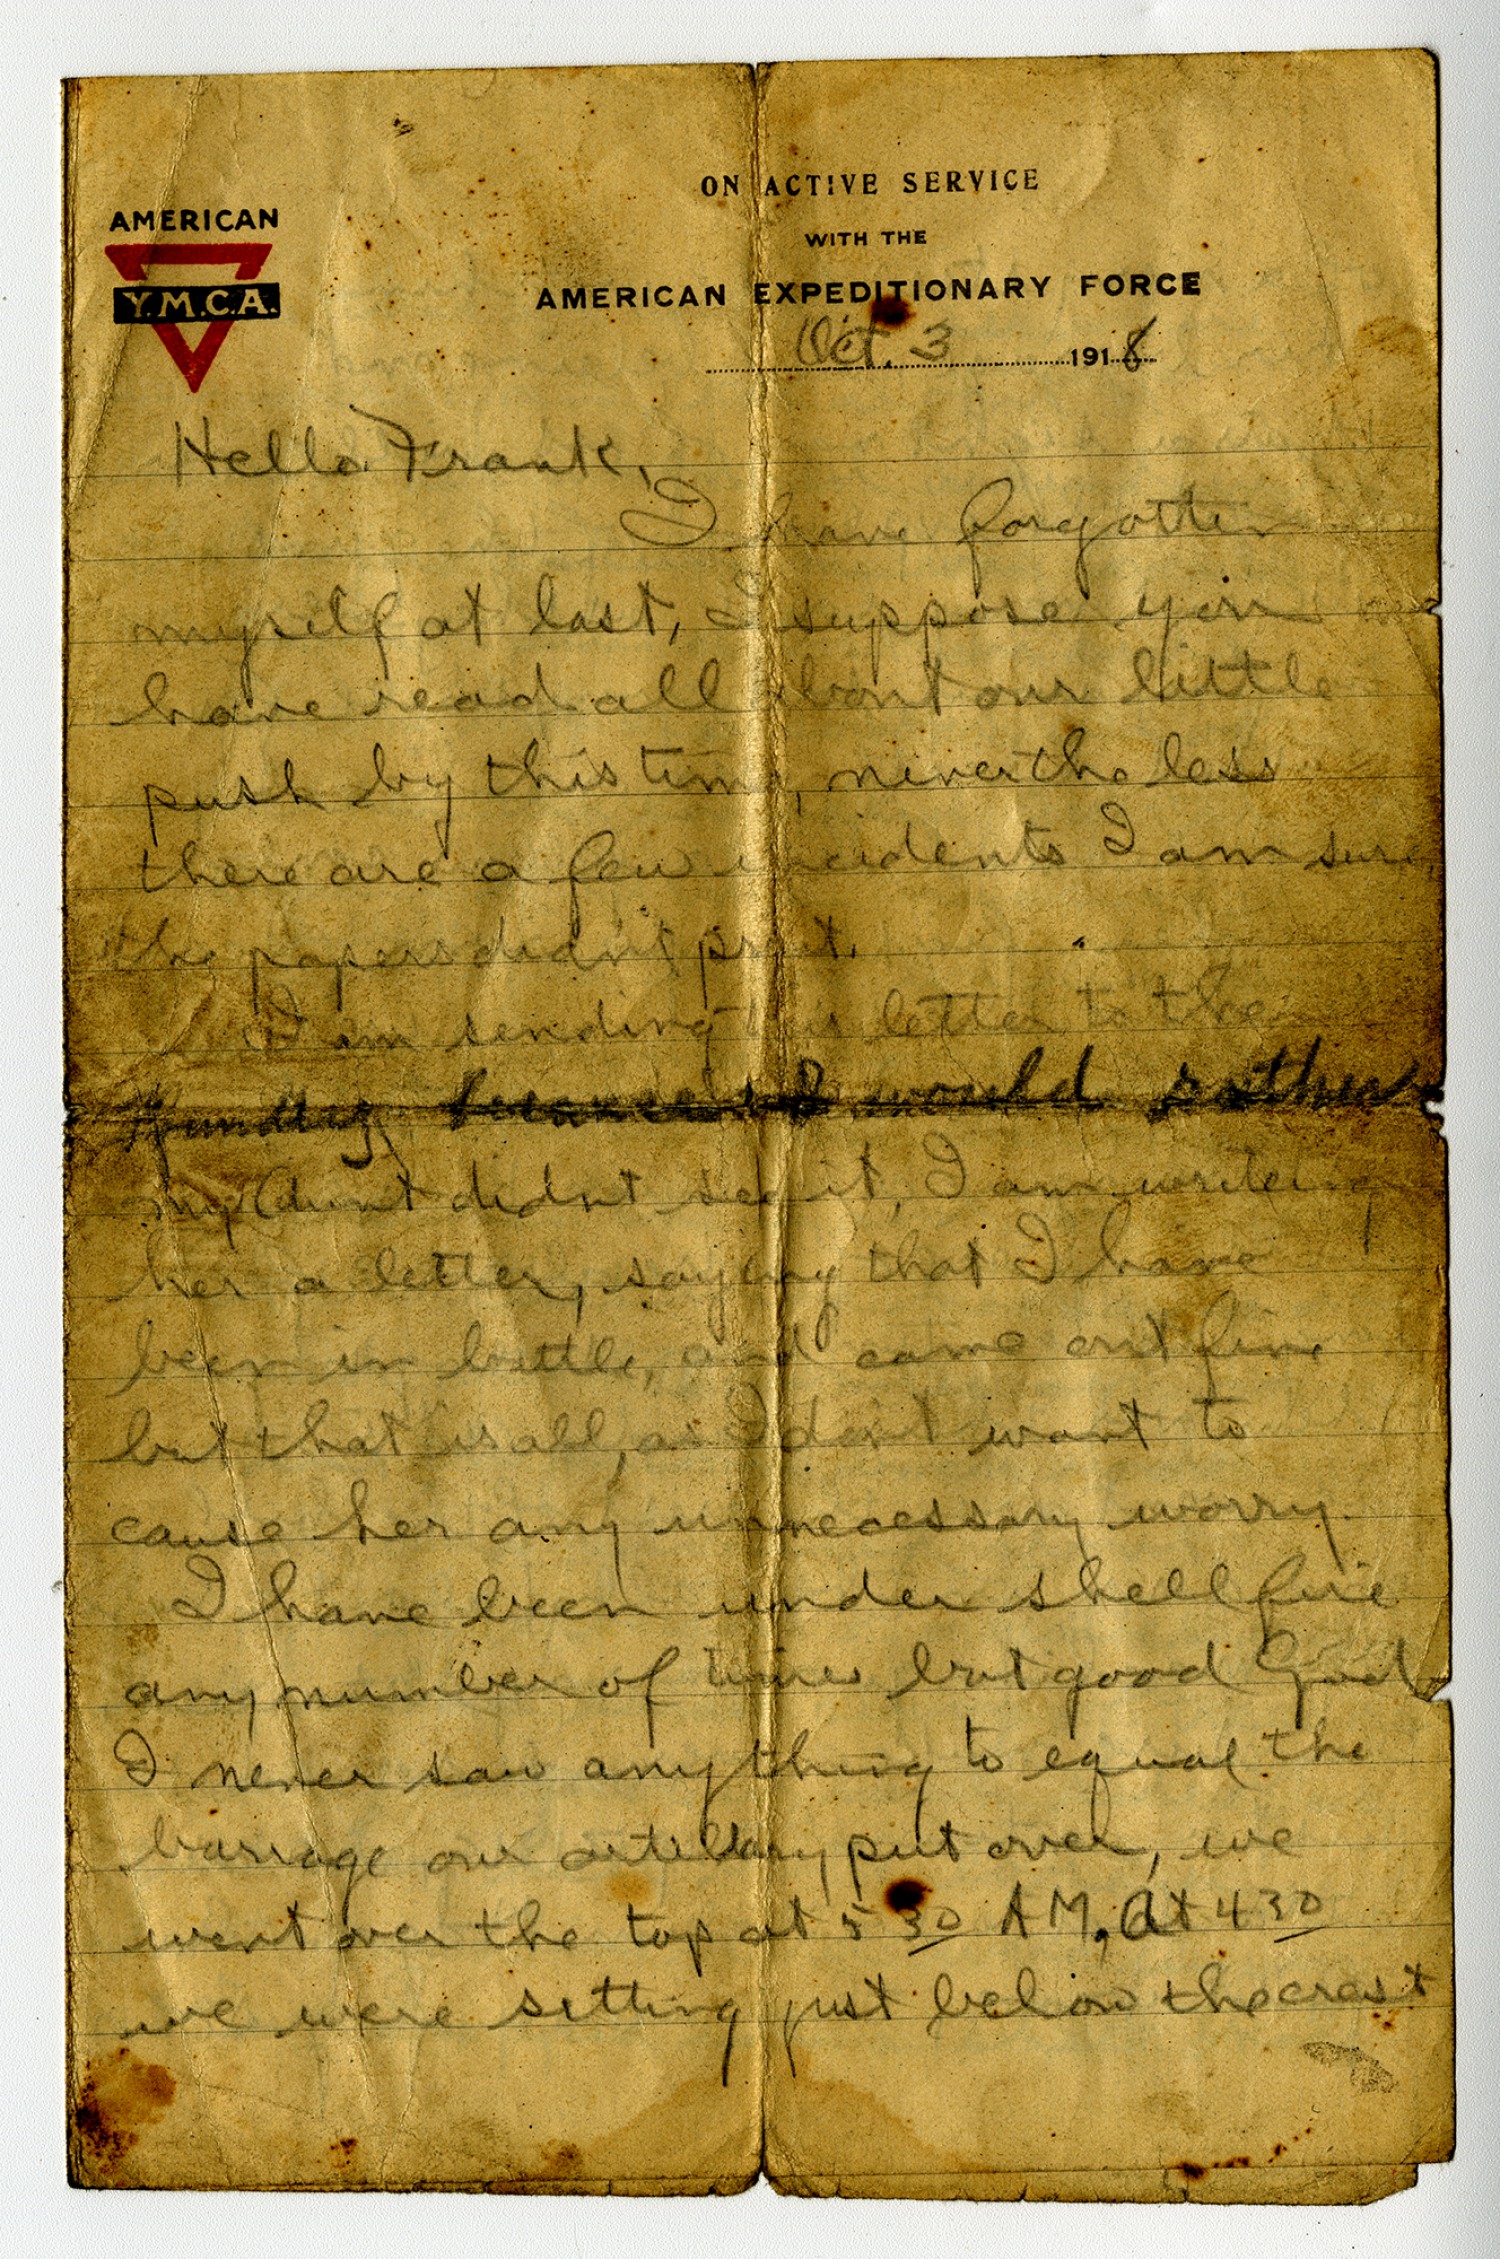 ON ACTIVE SERVICE
WITH THE
AMERICAN EXPEDITIONARY FORCE
AMERICAN
Y.M.C.A.
Oct. 3 1918
Hello Frank,
I have forgotten
myself at last, I suppose you
have read all about our little
push by this time, never the less
there are a few incidents I am sure
the papers didn't print.
I am sending this letter to the
because I would rather
my Aunt didn't see it, I am writeing
her a letter, saying that I have
been in battle, and came out fine
but that is all, as I don't want to
cause her any unnecessary worry.
I have been under shell fire
any number of times but good God
I never saw anything to equal the
barrage our artillary put over, we
went over the top at 5 30 A M, At 4 30
we were setting just below the crest